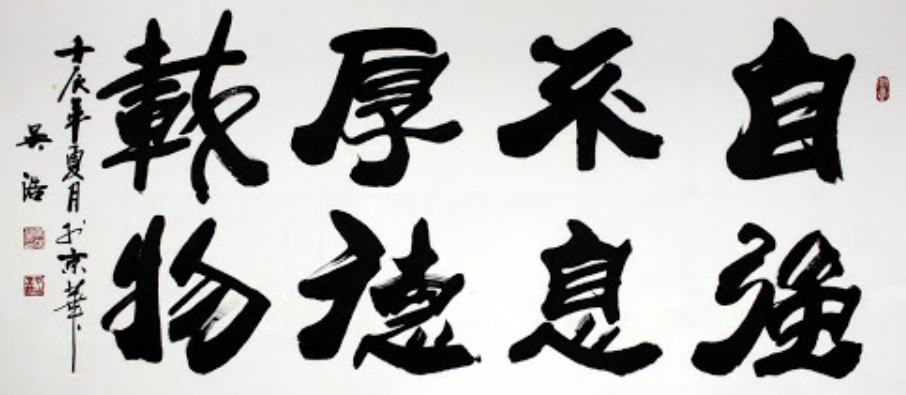 自強
不息
厚德
載物
壬辰年夏月於京華
吴浩